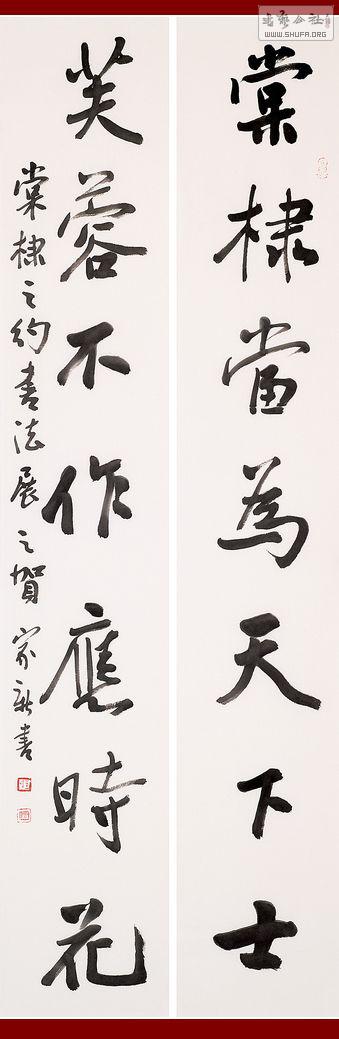 棠棣當為天下士
芙蓉不作應時花
棠棣之約書法展之賀 家新書
書藝公社
WWW.SHUFA.ORG